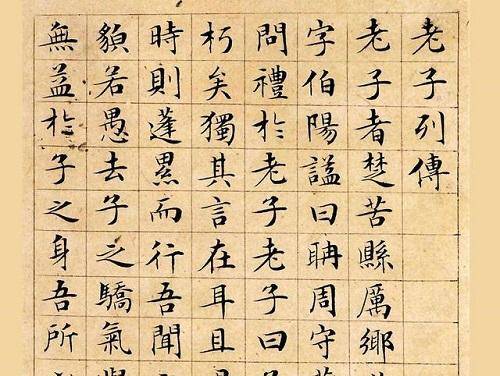 老子列傳
老子者楚苦縣厲鄉
字伯陽謚曰聃周守
問禮於老子老子曰
朽矣獨其言在耳且
時則蓬累而行吾聞
貌若愚去子之驕氣
無益於子之身吾所